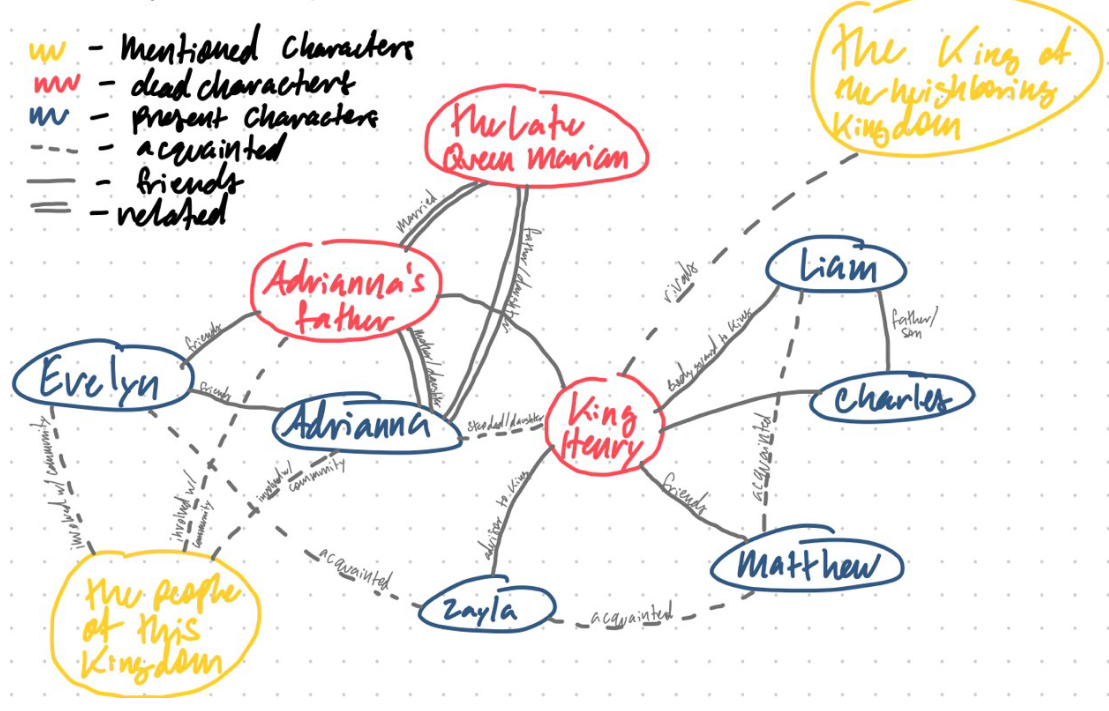 - Mentioned Characters
- dead characters
- present characters
- acquainted
- friends
- related
The King of
the neighboring
Kingdom
The Late
Queen Marian
married
father/daughter
rivals
Liam
Adrianna's
father
father/
son
bodyguard to King
friends
mother/daughter
Evelyn
friends
Charles
Adrianna
stepdad/daughter
King
Henry
involved w/ community
involved w/
community
involved w/
community
acquainted
friends
advisor to King
acquainted
Matthew
The people
of this
Kingdom
Zayla
acquainted